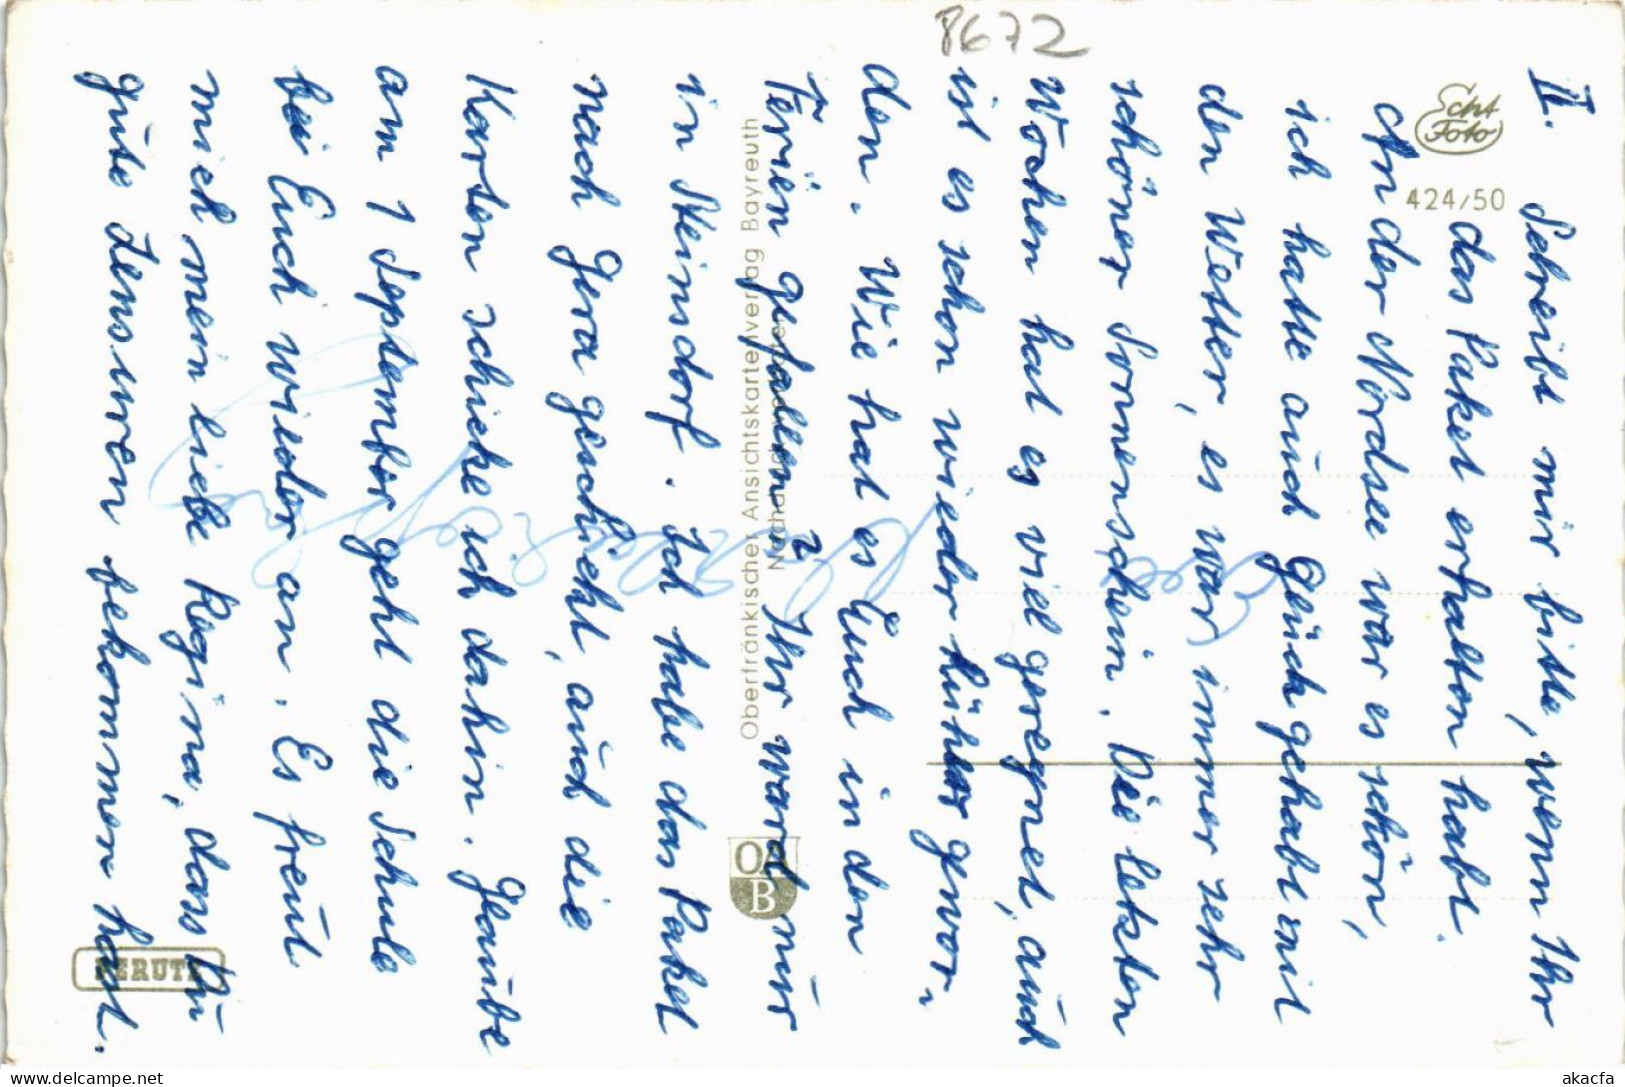 II. Schreibt mir bitte, wenn Ihr
das Paket erhalten habt.
An der Nordsee war es schön,
ich hatte auch Glück gehabt mit
den Wetter, es war immer sehr
schöner Sonnenschein. Die letzten
Wochen hat es viel geregnet, auch
ist es schon wieder kühler gewor-
den. Wie hat es Euch in den
Ferien gefallen? Ihr ward nur
in Steinsdorf. Ich habe das Paket
nach Gera geschickt, auch die
Karten schicke ich dahin. Glaube
am 1 September geht die Schule
bei Euch wieder an. Es freut
mich mein liebe Regina, dass Du
gute Zensuren bekommen hast.
8672
Echt
Foto
424/50
Oberfränkischer Ansichtskartenverlag Bayreuth
OA
B
PERUTZ
akacfa